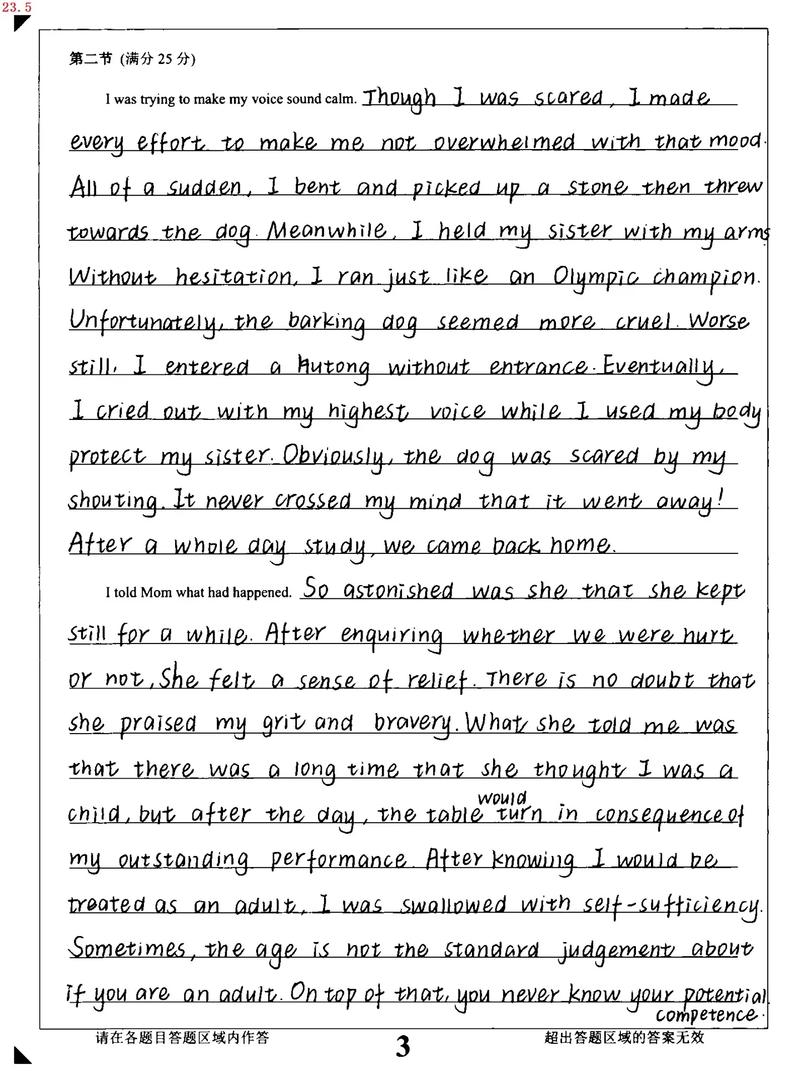 23.5
第二节 (满分 25 分)
I was trying to make my voice sound calm. Though I was scared, I made
every effort to make me not overwhelmed with that mood.
All of a sudden, I bent and picked up a stone then threw
towards the dog. Meanwhile, I held my sister with my arms
Without hesitation, I ran just like an Olympic champion.
Unfortunately, the barking dog seemed more cruel. Worse
still, I entered a Hutong without entrance. Eventually,
I cried out with my highest voice while I used my body
protect my sister. Obviously, the dog was scared by my
shouting. It never crossed my mind that it went away!
After a whole day study, we came back home.
I told Mom what had happened. So astonished was she that she kept
still for a while. After enquiring whether we were hurt
or not, She felt a sense of relief. There is no doubt that
she praised my grit and bravery. What she told me was
that there was a long time that she thought I was a
child, but after the day, the table would turn in consequence of
my outstanding performance. After knowing I would be
treated as an adult, I was swallowed with self-sufficiency.
Sometimes, the age is not the standard judgement about
if you are an adult. On top of that, you never know your potential
competence.
请在各题目答题区域内作答
3
超出答题区域的答案无效